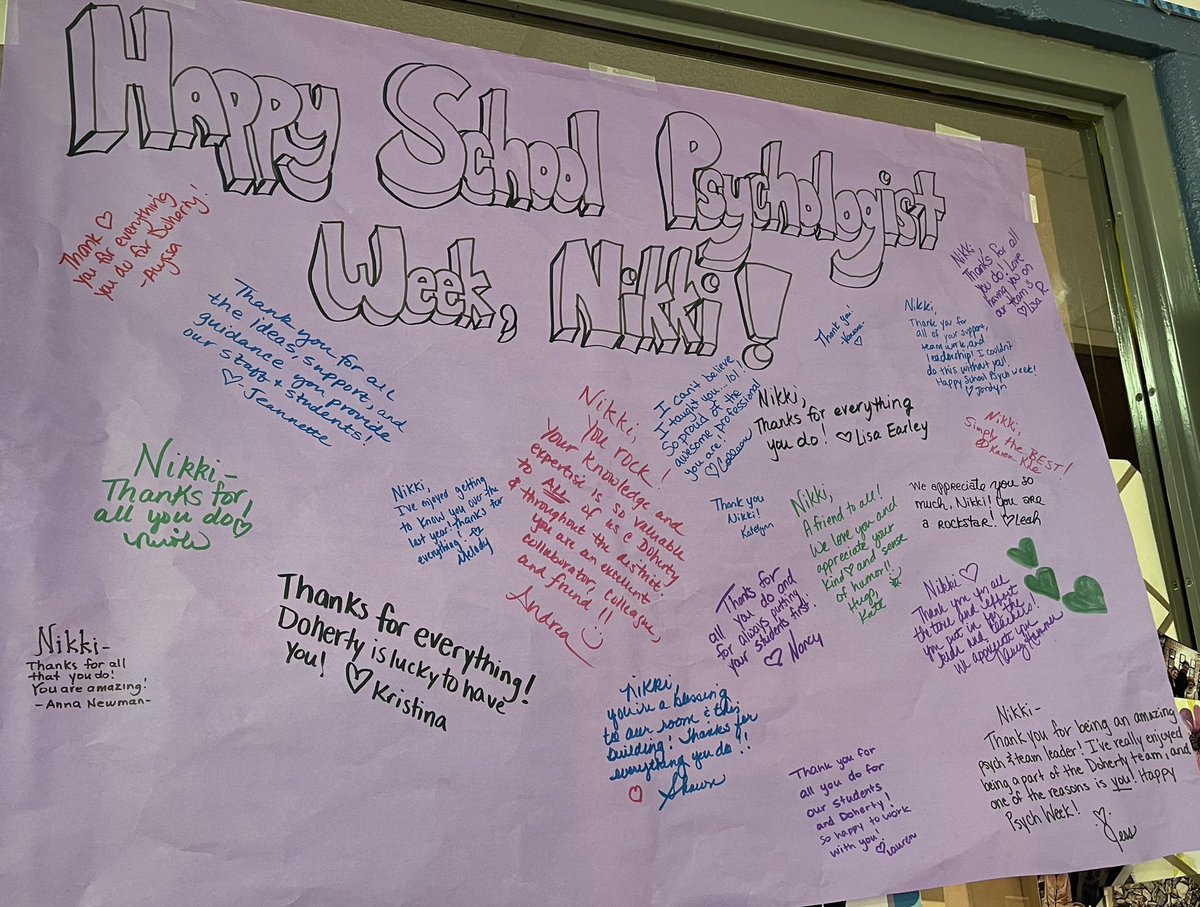 Happy School Psychologist
Week, Nikki!
Thank ♡
you for everything
you do for Doherty!
-Alyssa
Thank you for all
the ideas, support, and
guidance you provide
our staff & students!
♡- Jeannette
Nikki-
Thanks for
all you do! ♡
Nicole
Nikki,
I've enjoyed getting
to know you over the
last year! Thanks for
everything.
Melody
Nikki,
You rock!
Your knowledge and
expertise is so valuable
to ALL of us @ Doherty
& throughout the district.
You are an excellent
collaborator, colleague,
and friend!!
Andrea
I can't believe
I taught you...lol!
So proud of the
awesome professional
you are!
♡ Colleen
Thank you!
♡
Nikki,
Thanks for all
you do! Love
having you on
our team
♡ Lisa R
Nikki,
Thank you for
all of your support,
teamwork, and
leadership! I couldn't
do this without you!
Happy School Psych Week!
♡ Jordyn
Nikki,
Thanks for everything
you do! ♡ Lisa Earley
Nikki,
Simply the BEST!
Karen
We appreciate you so
much, Nikki! You are
a rockstar! ♡ Leah
Thank you
Nikki!
Katelyn
Nikki,
A friend to all!
We love you and
appreciate your
kind ♡ and sense
of humor!!
Hugs,
Kate
Thanks for
all you do and
for always putting
your students first.
♡ Nancy
Nikki ♡
Thank you for all
the time and effort
you put in for the
kids and teachers!
We appreciate you
Nikki-
Thanks for all
that you do!
You are amazing!
-Anna Newman-
Thanks for everything!
Doherty is lucky to have
you! ♡ Kristina
Nikki
you're a blessing
to our room & this
building! Thanks for
everything you do!!
♡ Shawn
Thank you for
all you do for
our students
and Doherty!
So happy to work
with you!
♡ Lauren
Nikki-
Thank you for being an amazing
psych & team leader! I've really enjoyed
being a part of the Doherty team, and
one of the reasons is you! Happy
Psych Week! ♡
Jess